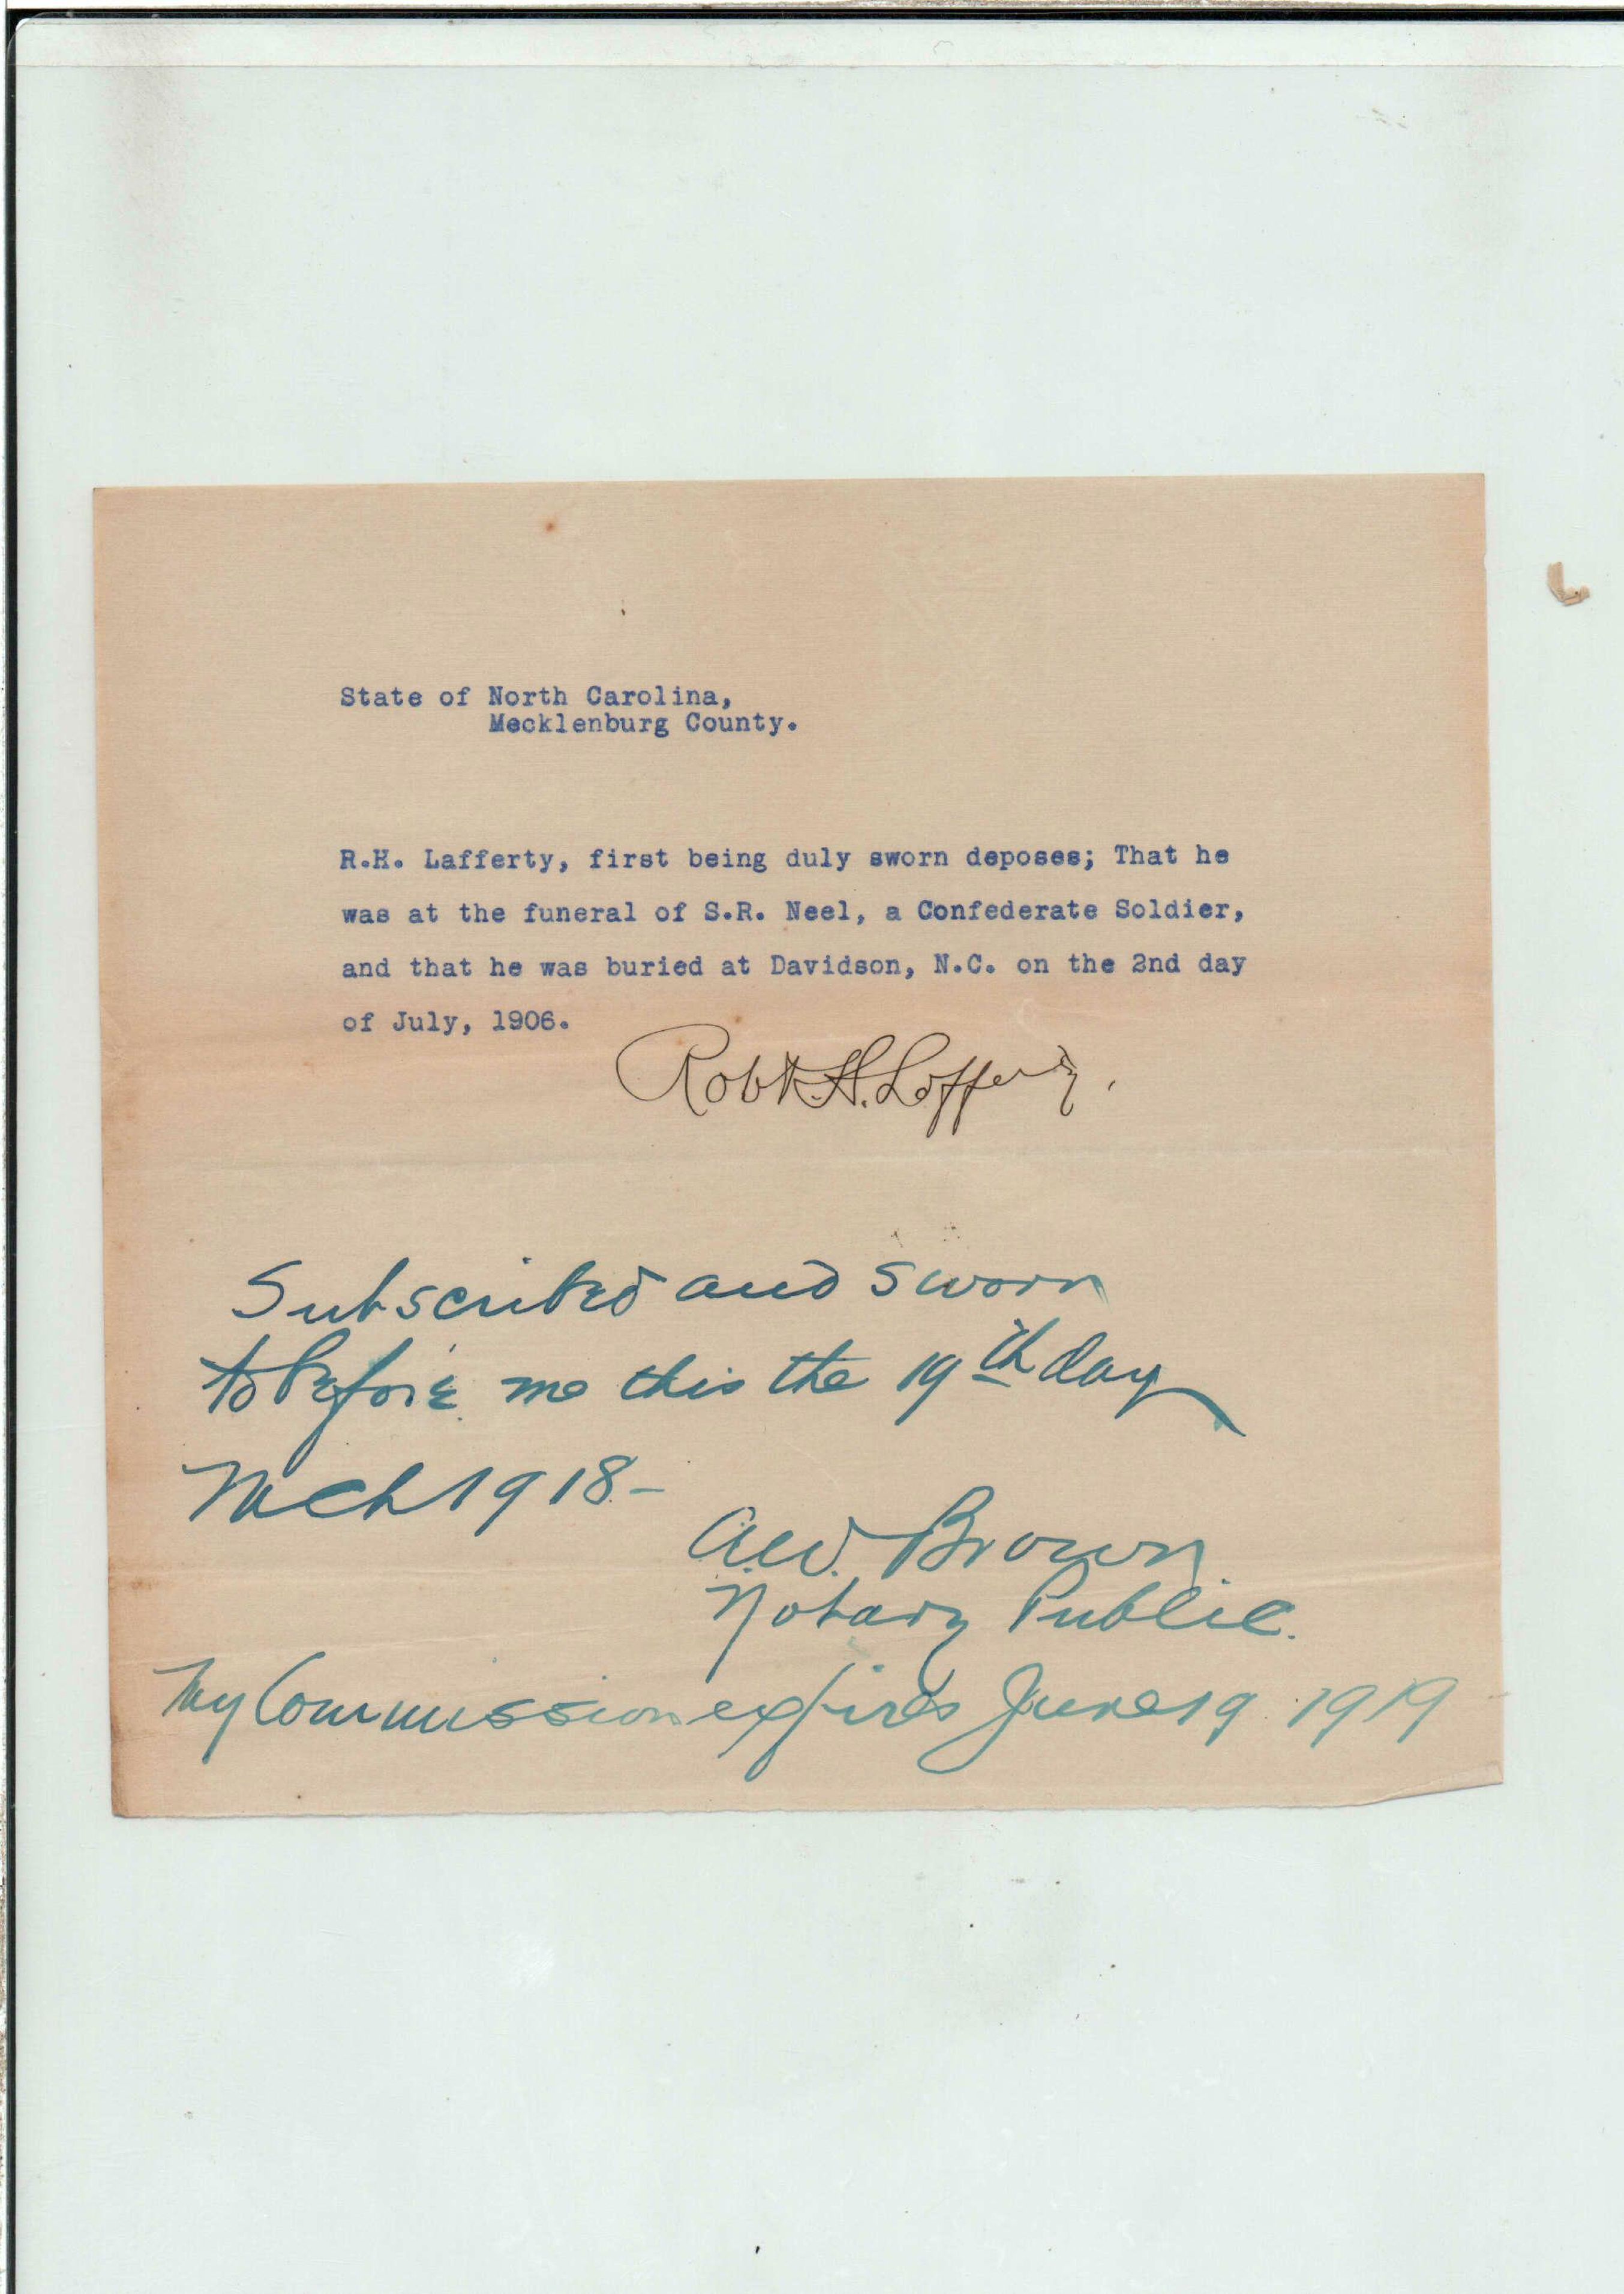 State of North Carolina,
Mecklenburg County.
R.H. Lafferty, first being duly sworn deposes; That he
was at the funeral of S.R. Neel, a Confederate Soldier,
and that he was buried at Davidson, N.C. on the 2nd day
of July, 1906.
Robt. H. Lafferty.
Subscribed and sworn
to before me this the 19th day
Mch 1918-
A.W. Brown
Notary Public.
My Commission expires June 19 1919